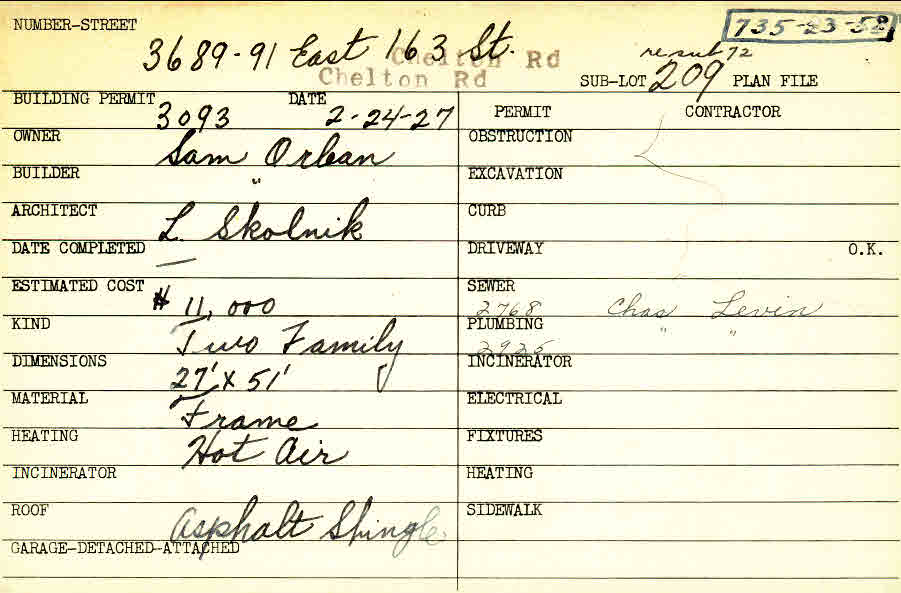 NUMBER-STREET
735-23-52
3689-91 East 163 St.
Chelton Rd
Chelton Rd
resub 72
SUB-LOT 209 PLAN FILE
BUILDING PERMIT 3093 DATE 2-24-27
PERMIT CONTRACTOR
OWNER Sam Orban
OBSTRUCTION
BUILDER "
EXCAVATION
ARCHITECT L. Skolnik
CURB
DATE COMPLETED —
DRIVEWAY O.K.
ESTIMATED COST $ 11,000
SEWER 2768 Chas Levin
KIND Two Family
PLUMBING 2925 " "
DIMENSIONS 27' x 51'
INCINERATOR
MATERIAL Frame
ELECTRICAL
HEATING Hot Air
FIXTURES
INCINERATOR
HEATING
ROOF Asphalt Shingle
SIDEWALK
GARAGE-DETACHED-ATTACHED